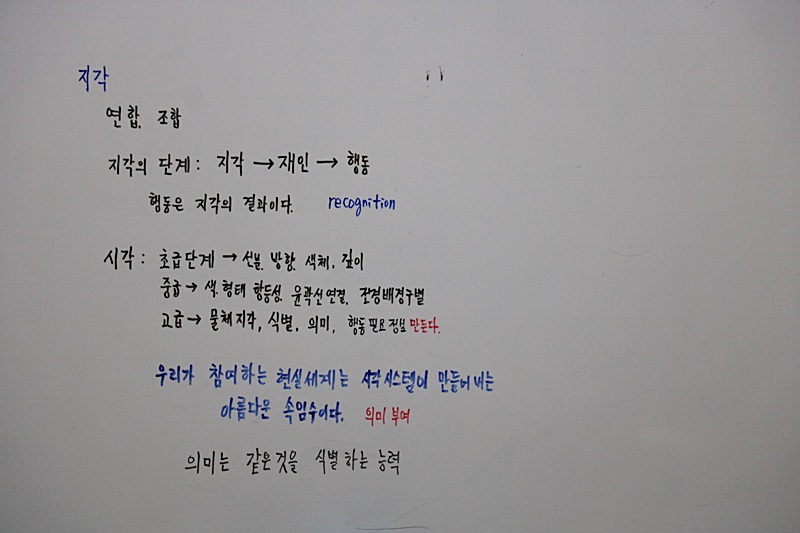 지각
연합. 조합
지각의 단계: 지각 → 재인 → 행동
행동은 지각의 결과이다. recognition
시각: 초급단계 → 선분. 방향. 색체. 깊이
중급 → 색.형태 항등성. 윤곽선 연결. 전경배경구별
고급 → 물체지각, 식별, 의미, 행동 필요 정보 만든다.
우리가 참여하는 현실세계는 시각 시스템이 만들어 내는
아름다운 속임수이다. 의미 부여
의미는 같은것을 식별하는 능력